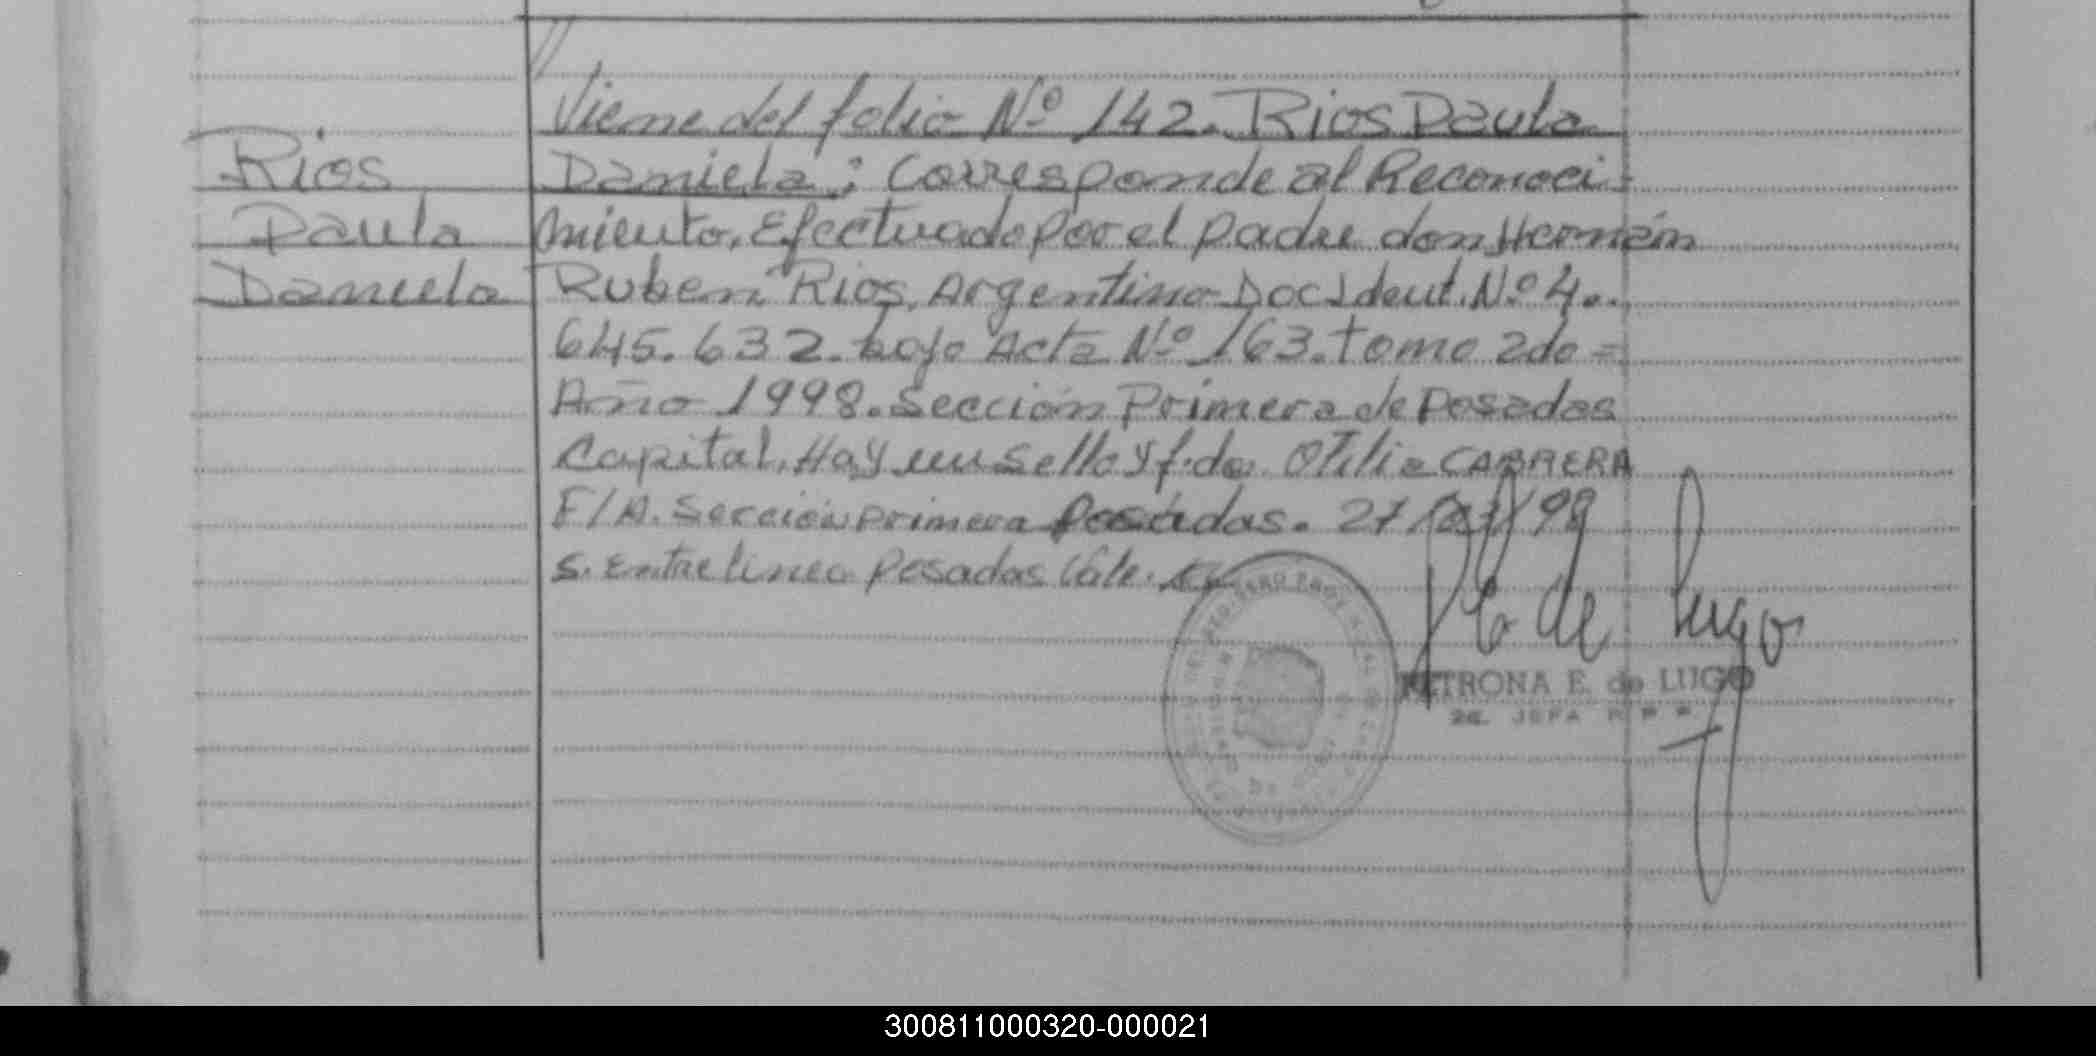 Viene del folio Nº 142. Rios Paula
Rios
Paula
Daniela
Daniela: Corresponde al Reconoci-
miento, Efectuado por el padre don Hernán
Ruben Rios, Argentino Doc Ident. Nº 4..
645.632. bajo Acta Nº 163. tomo 2do =
Año 1998. Sección Primera de Posadas
Capital. Hay un sello y f.do Otilia CABRERA
F/A. Sección primera Posadas. 27 98
S. Entrelinea Posadas Vale.
de Lugo
PETRONA E. de LUGO
JEFA R P P
300811000320-000021